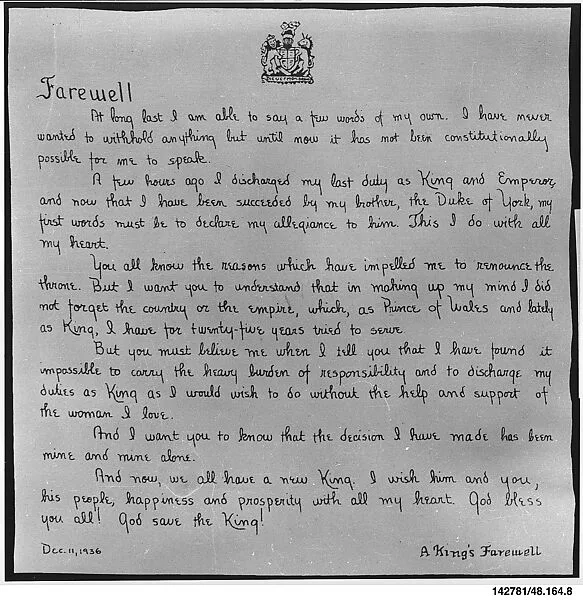 Farewell
At long last I am able to say a few words of my own. I have never
wanted to withhold anything but until now it has not been constitutionally
possible for me to speak.
A few hours ago I discharged my last duty as King and Emperor,
and now that I have been succeeded by my brother, the Duke of York, my
first words must be to declare my allegiance to him. This I do with all
my heart.
You all know the reasons which have impelled me to renounce the
throne. But I want you to understand that in making up my mind I did
not forget the country or the empire, which, as Prince of Wales and lately
as King, I have for twenty-five years tried to serve.
But you must believe me when I tell you that I have found it
impossible to carry the heavy burden of responsibility and to discharge my
duties as King as I would wish to do without the help and support of
the woman I love.
And I want you to know that the decision I have made has been
mine and mine alone.
And now, we all have a new King. I wish him and you,
his people, happiness and prosperity with all my heart. God bless
you all! God save the King!
Dec. 11, 1936
A King's Farewell
142781/48.164.8